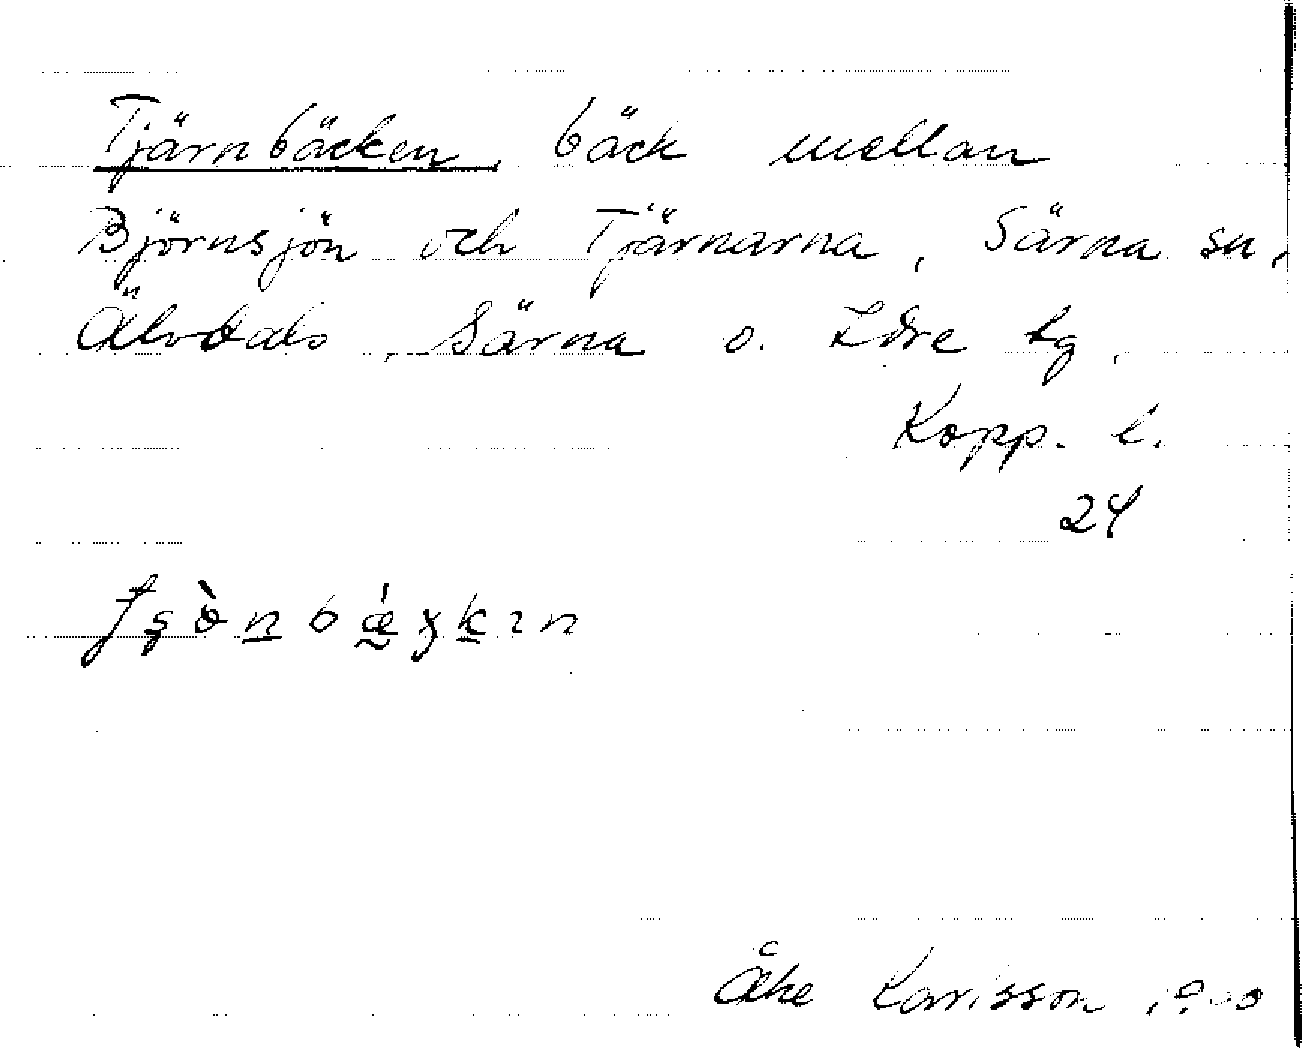 Tjärnbäcken, bäck mellan
Björnsjön och Tjärnarna, Särna sn,
Älvdals, Särna o. Idre tg,
Kopp. l.
24
Åke Karlsson